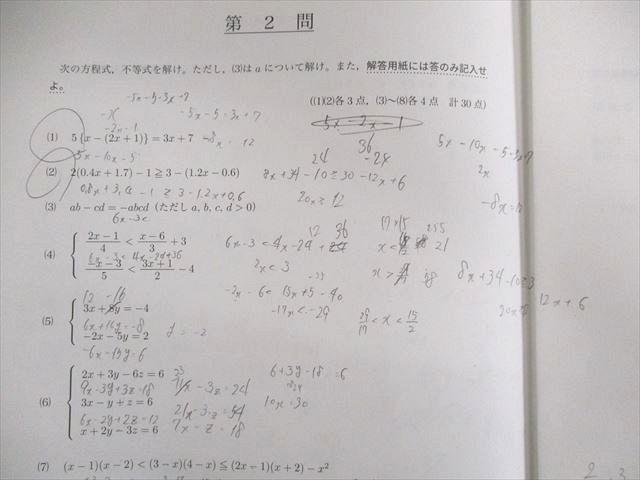 第 2 問
次の方程式，不等式を解け。ただし，(3)は a について解け。また，解答用紙には答のみ記入せ
よ。
((1)(2)各3点，(3)~(8)各4点 計30点)
-5x-5-3x+7
-5x-5=3x+7
5x-2x-1
(1) 5{x-(2x+1)}=3x+7
-8x = 12
36
5x-10x-5
24 -24
5x-10x-5=3x+7
2x
-8x=12
(2) 2(0.4x+1.7)-1≧3-(1.2x-0.6)
8x+34-10≧30-12x+6
20x≧12
(3) ab-cd=-abcd (ただし a, b, c, d>0)
(4) { (2x-1)/4 < (x-6)/3 + 3
6x-3<4x-24+36
2x<3
(-x-3)/5 < (3x+1)/2 - 4
-2x-6<15x+5-40
-17x<-29
29/17<x<15/2
8x+34-10≧3
12x+6
(5) { 3x+8y=-4
6x+16y=-8
y=-2
-2x-5y=2
-6x-15y=6
(6) { 2x+3y-6z=6
6+3y-18=6
9x-3y+3z=18
11x-3z=24
3x-y+z=6
21x-3z=54
10x=30
6x-2y+2z=12
7x-z=18
x+2y-3z=6
(7) (x-1)(x-2)<(3-x)(4-x)≦(2x-1)(x+2)-x²